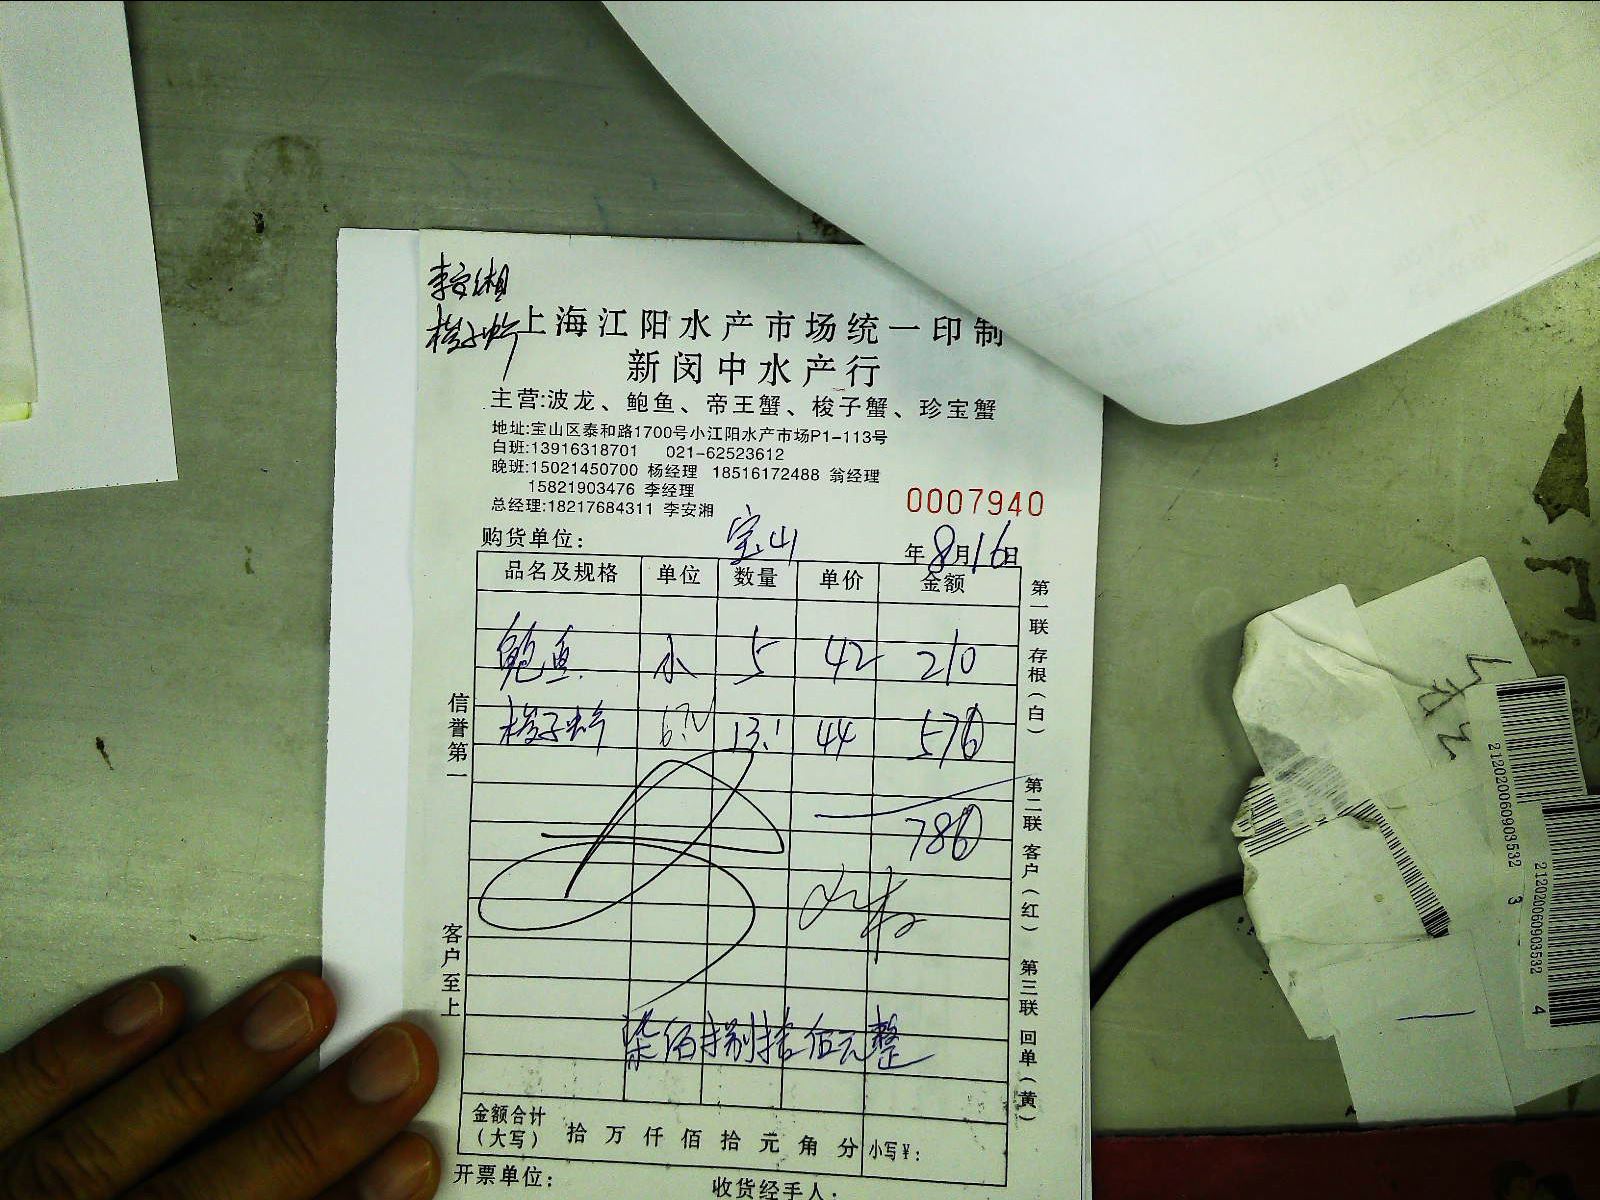 李安湘
梭子蟹
上海江阳水产市场统一印制
新闵中水产行
主营:波龙、鲍鱼、帝王蟹、梭子蟹、珍宝蟹
地址:宝山区泰和路1700号小江阳水产市场P1-113号
白班:13916318701 021-62523612
晚班:15021450700 杨经理 18516172488 翁经理
15821903476 李经理
总经理:18217684311 李安湘
0007940
购货单位: 宝山 年8月16日
品名及规格 单位 数量 单价 金额
鲍鱼 小 5 42 210
梭子蟹 13.1 44 576
786
柒佰捌拾 元整
金额合计
(大写) 拾万仟佰拾元角分 小写¥:
开票单位: 收货经手人:
信誉第一
客户至上
第一联 存根(白)
第二联 客户(红)
第三联 回单(黄)
2120200609035323
2120200609035324